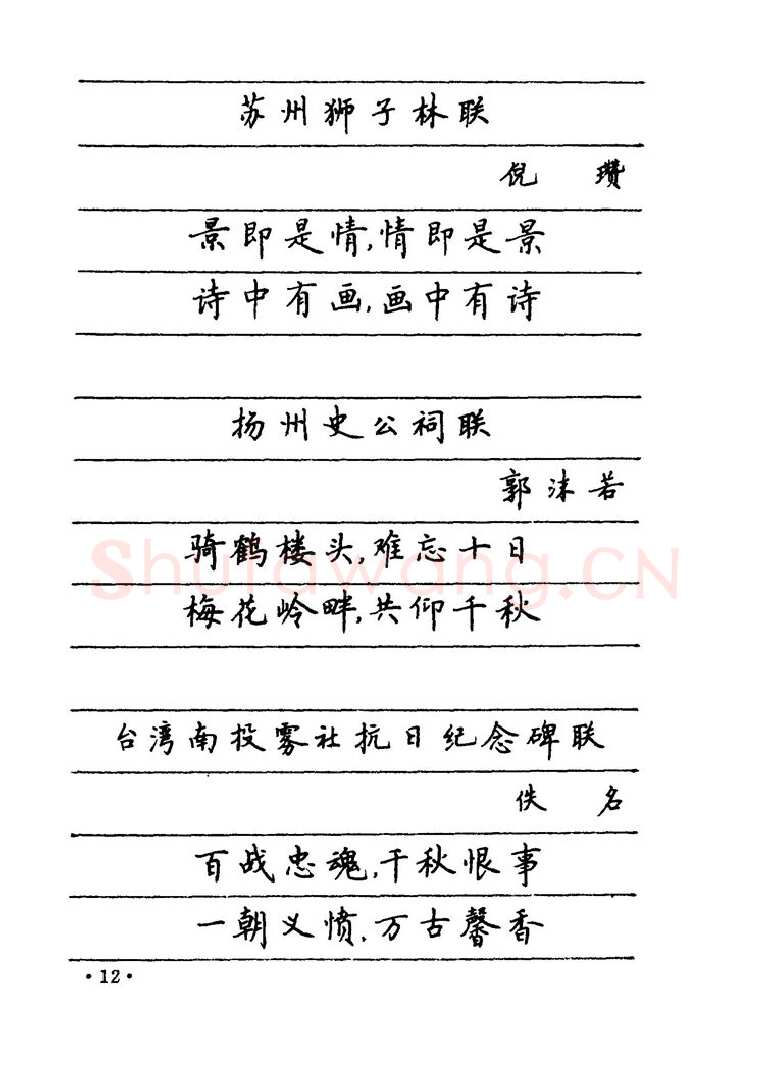 苏州狮子林联
倪 瓒
景即是情,情即是景
诗中有画,画中有诗
扬州史公祠联
郭沫若
骑鹤楼头,难忘十日
梅花岭畔,共仰千秋
shufawang.CN
台湾南投雾社抗日纪念碑联
佚 名
百战忠魂,千秋恨事
一朝义愤,万古馨香
·12·